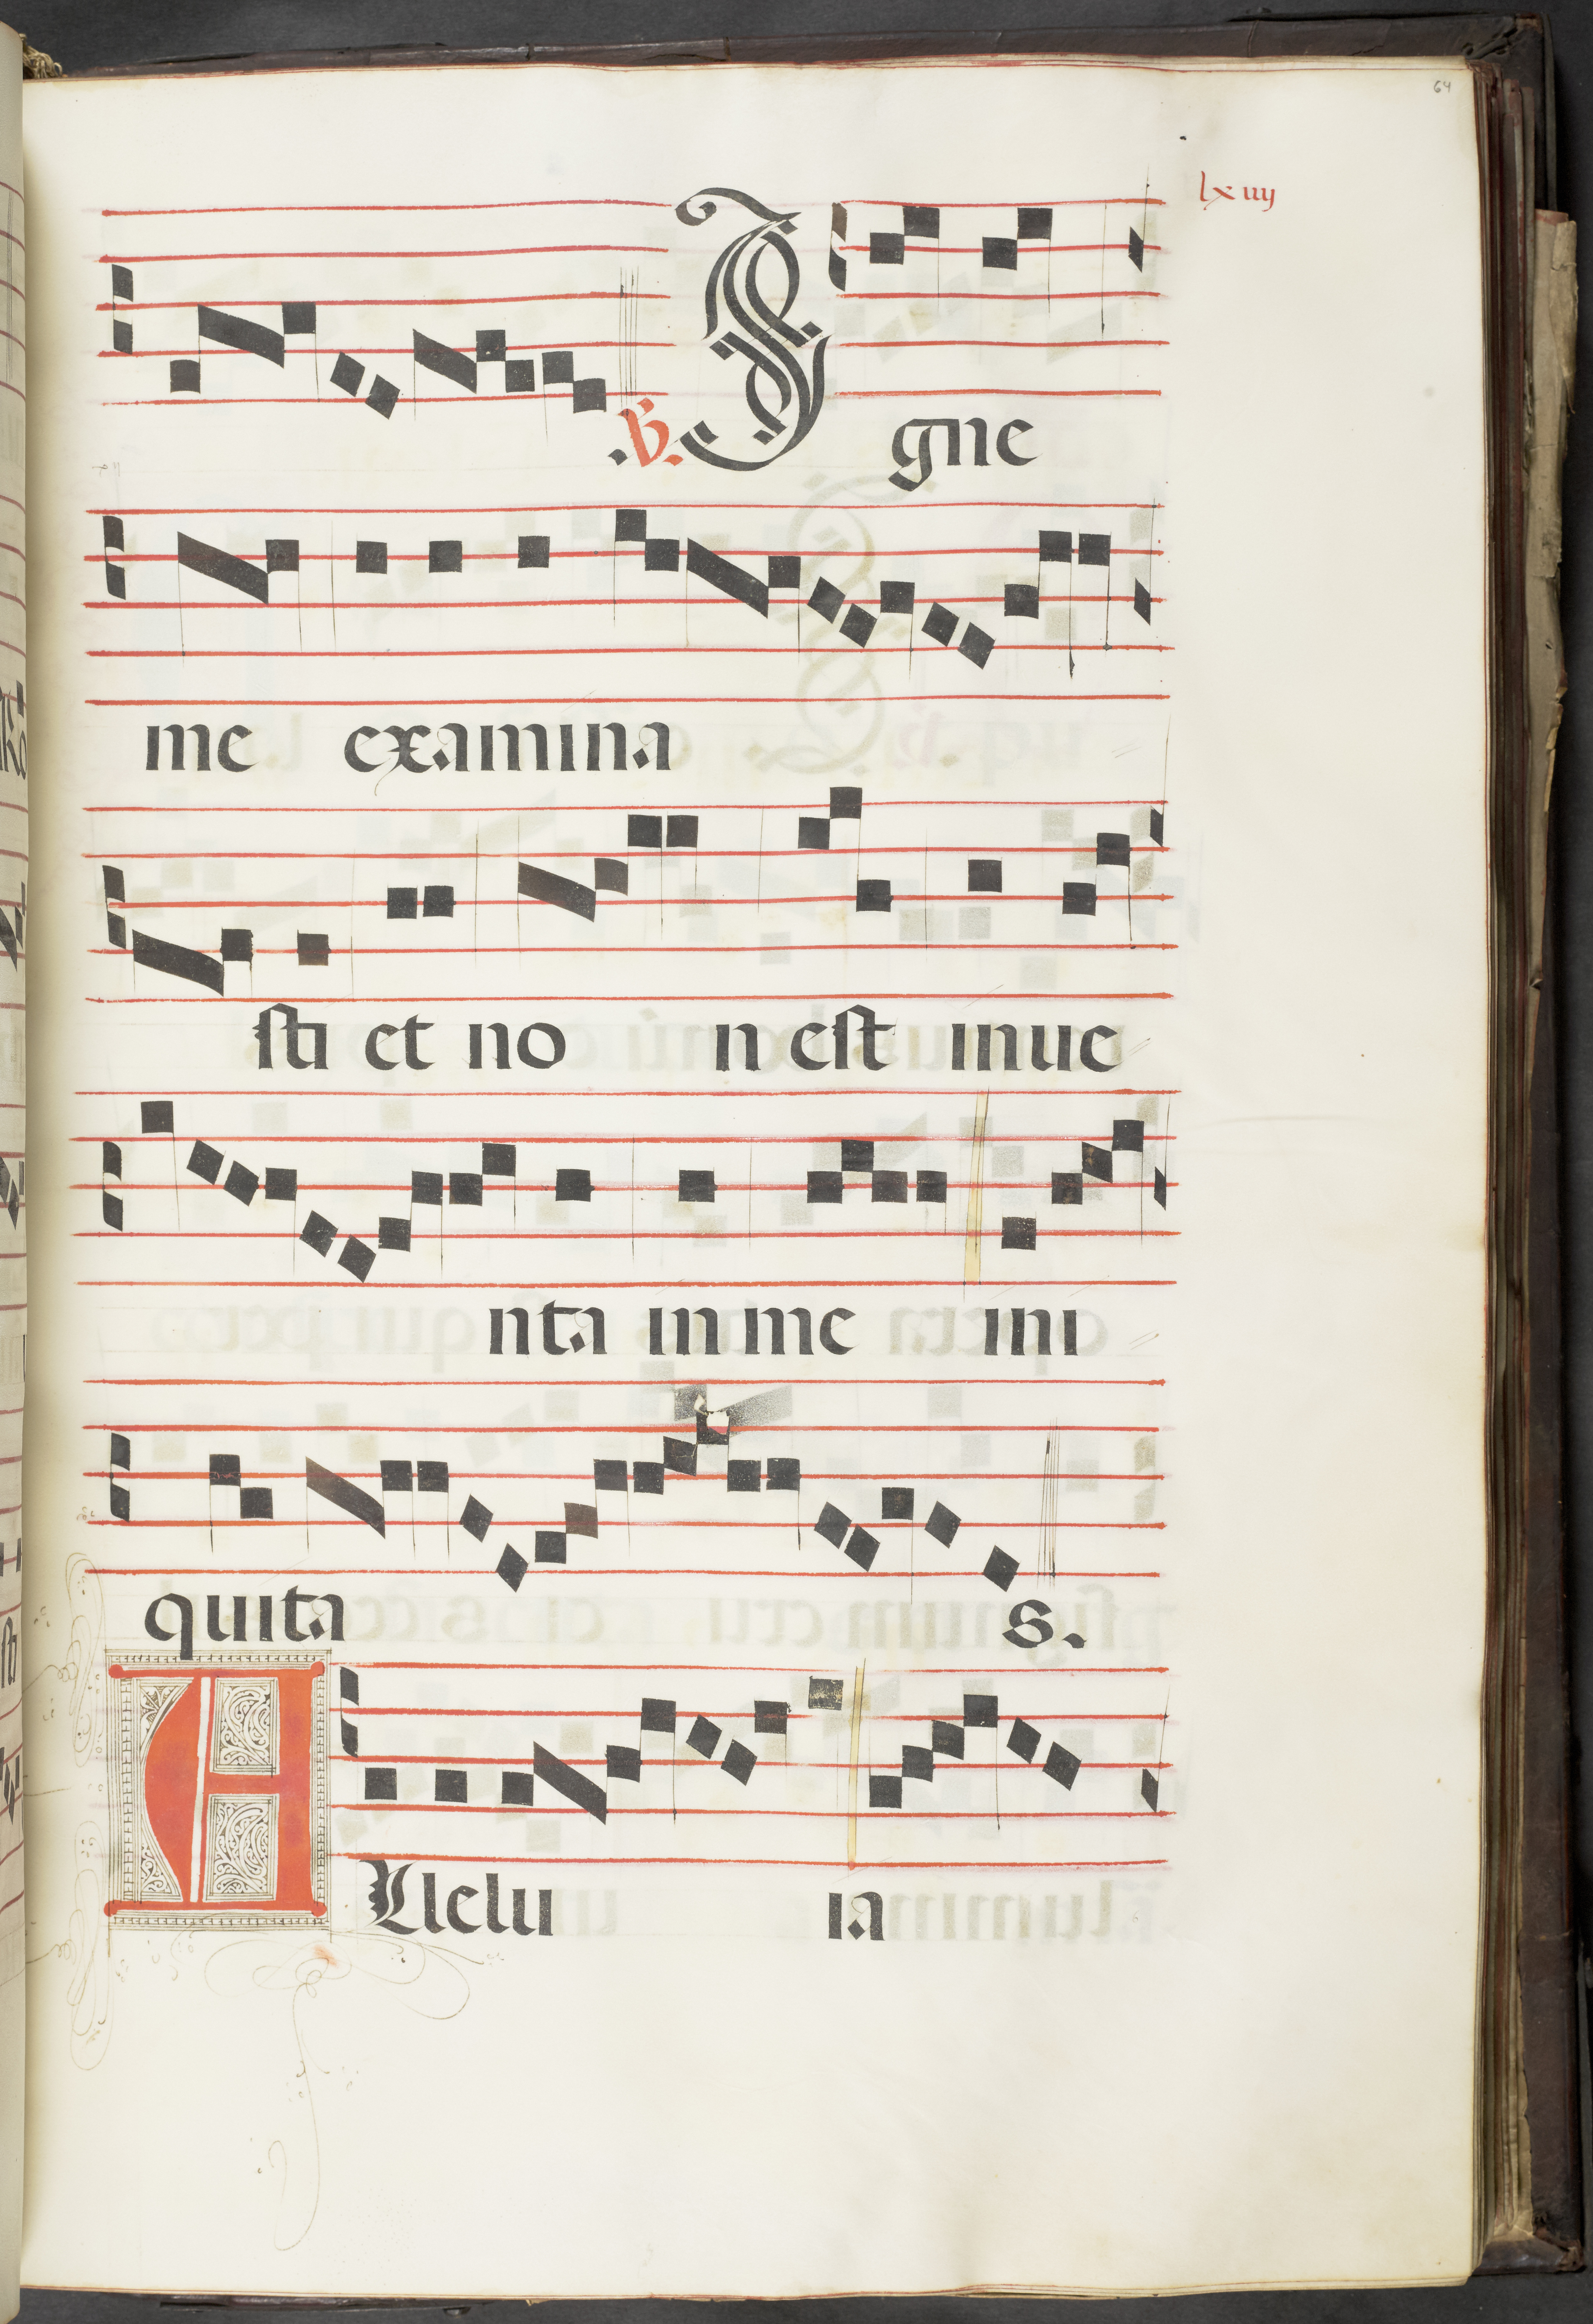 64
lxiiij
.V. I gne
me examina
sti et no n est inue
nta in me ini
quita s.
A Llelu ia